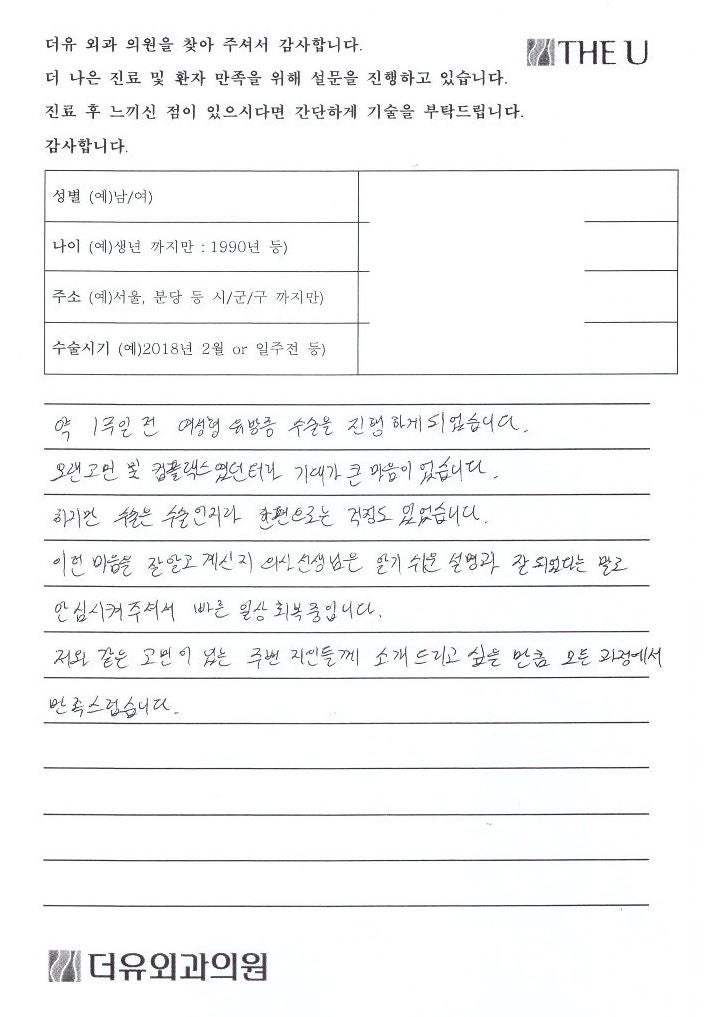 더유 외과 의원을 찾아 주셔서 감사합니다.
THE U
더 나은 진료 및 환자 만족을 위해 설문을 진행하고 있습니다.
진료 후 느끼신 점이 있으시다면 간단하게 기술을 부탁드립니다.
감사합니다.
성별 (예)남/여)
나이 (예)생년 까지만 : 1990년 등)
주소 (예)서울, 분당 등 시/군/구 까지만)
수술시기 (예)2018년 2월 or 일주전 등)
약 1주일 전 여성형 유방증 수술을 진행하게 되었습니다.
오랜고민 및 컴플렉스였던터라 기대가 큰 마음이었습니다.
하지만 수술은 수술인지라 한편으로는 걱정도 있었습니다.
이런 마음을 잘알고 계신지 의사선생님은 알기 쉬운 설명과 잘 되었다는 말로
안심시켜주셔서 빠른 일상 회복중입니다.
저와 같은 고민이 있는 주변 지인들께 소개드리고 싶을 만큼 모든 과정에서
만족스럽습니다.
더유외과의원